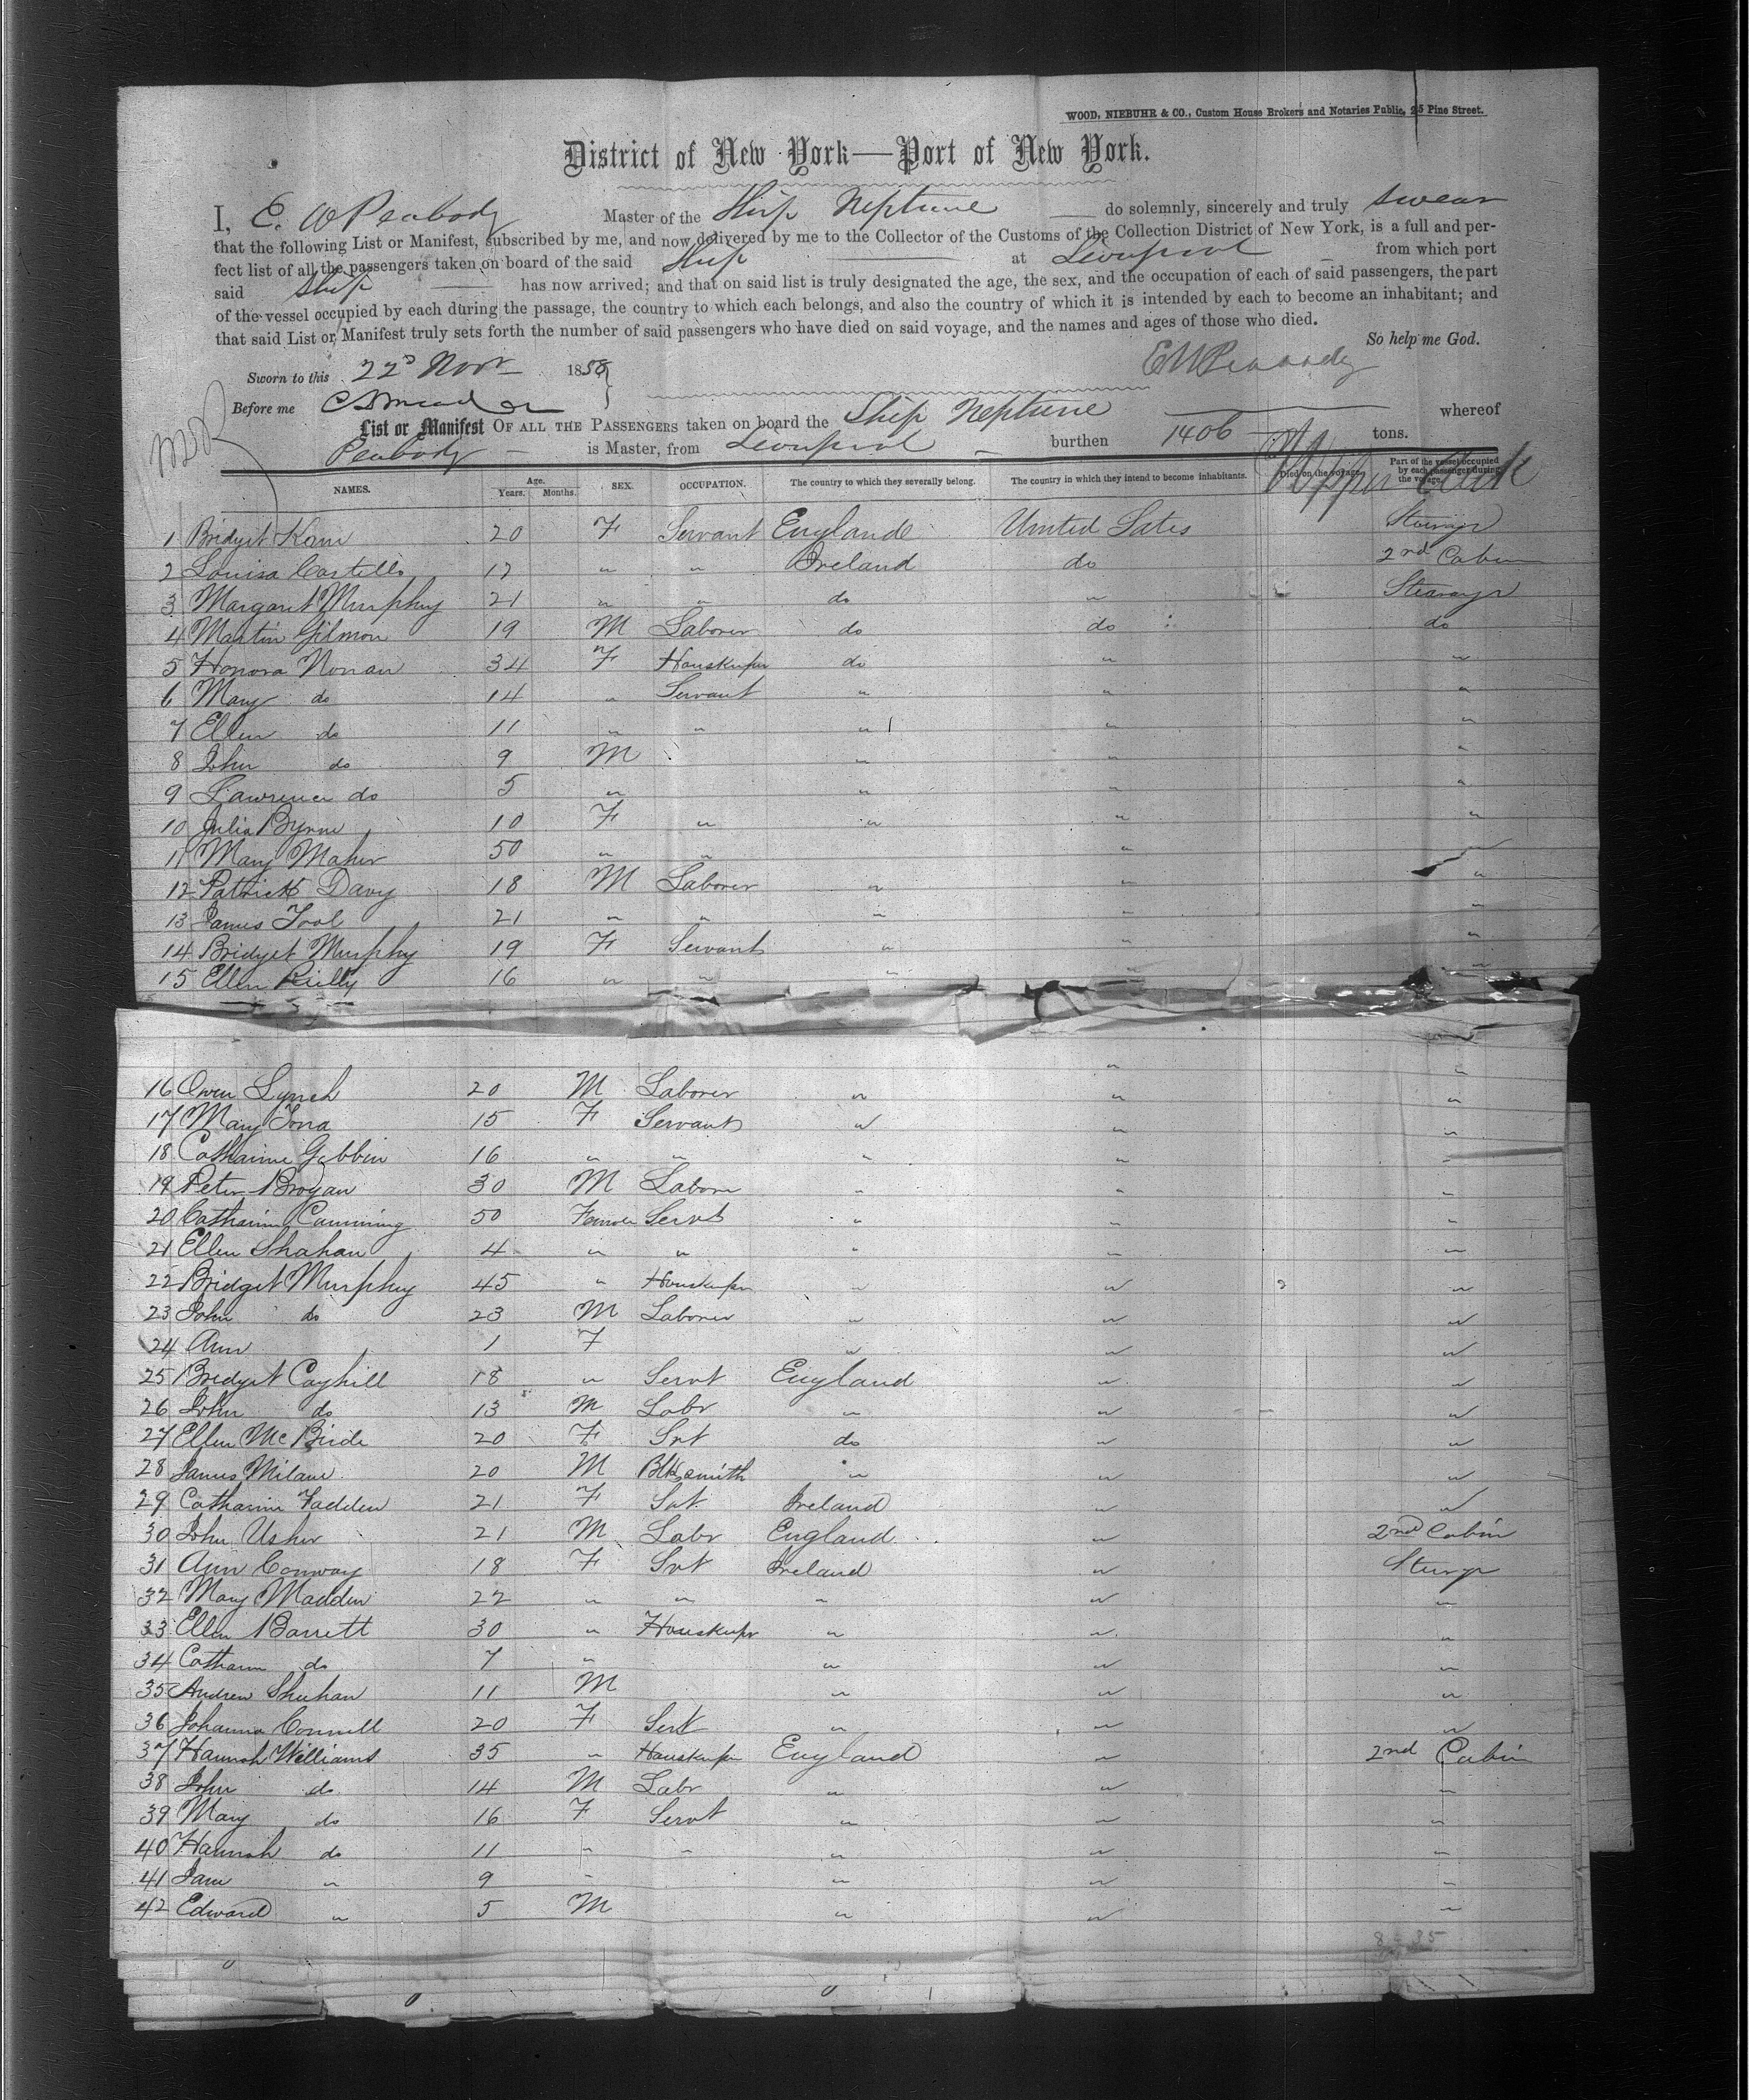 WOOD, NIEBUHR & CO., Custom House Brokers and Notaries Public, 25 Pine Street.
District of New York—Port of New York.
I, E. W Peabody Master of the Ship Neptune do solemnly, sincerely and truly swear
that the following List or Manifest, subscribed by me, and now delivered by me to the Collector of the Customs of the Collection District of New York, is a full and per-
fect list of all the passengers taken on board of the said Ship at Liverpool from which port
said Ship has now arrived; and that on said list is truly designated the age, the sex, and the occupation of each of said passengers, the part
of the vessel occupied by each during the passage, the country to which each belongs, and also the country of which it is intended by each to become an inhabitant; and
that said List or Manifest truly sets forth the number of said passengers who have died on said voyage, and the names and ages of those who died.
So help me God.
Sworn to this 22d Novr 1858
E W Peabody
Before me
List or Manifest OF ALL THE PASSENGERS taken on board the Ship Neptune whereof
Peabody is Master, from Liverpool burthen 1406 tons.
Upper Deck
NAMES. Age. Years. Months. SEX. OCCUPATION. The country to which they severally belong. The country in which they intend to become inhabitants. Died on the voyage. Part of the vessel occupied by each passenger during the voyage.
1 Bridget Kane 20 F Servant England United States Steerage
2 Louisa Costello 17 " " Ireland do 2nd Cabin
3 Margaret Murphy 21 " " do " Steerage
4 Martin Gilmon 19 M Laborer do do do
5 Honora Nonan 34 F Houskeeper do " "
6 Mary do 14 " Servant " " "
7 Ellen do 11 " " " " "
8 John do 9 M " " "
9 Lawrence do 5 " " " "
10 Julia Byrne 10 F " " " "
11 Mary Maher 50 " " " "
12 Patrick Davy 18 M Laborer " " "
13 James Tool 21 " " " " "
14 Bridget Murphy 19 F Servant " " "
15 Ellen Reilly 16 " " " " "
16 Owen Lynch 20 M Laborer " " "
17 Mary Tona 15 F Servant " " "
18 Catharine Gibbin 16 " " " " "
19 Peter Brogan 30 M Labore " " "
20 Catharine Canning 50 Female Servt " " "
21 Ellen Shahan 4 " " " " "
22 Bridget Murphy 45 " Houskeeper " " "
23 John do 23 M Laborer " " "
24 Ann 1 F " " "
25 Bridget Cayhill 18 " Servt England " "
26 John do 13 M Labr " " "
27 Ellen McBride 20 F Srt do " "
28 James Milane 20 M Blksmith " " "
29 Catharine Fadden 21 F Srt Ireland " "
30 John Usher 21 M Labr England " 2nd Cabin
31 Ann Conway 18 F Srt Ireland " Steerage
32 Mary Madden 22 " " " " "
33 Ellen Barrett 30 " Houskeeper " " "
34 Catharine do 7 " " " "
35 Andrew Shuhan 11 M " " "
36 Johanna Connell 20 F Sert " " "
37 Hannah Williams 35 " Houskeeper England " 2nd Cabin
38 John do 14 M Labr " " "
39 Mary do 16 F Servt " " "
40 Hannah do 11 " " " " "
41 Jane " 9 " " " "
42 Edward " 5 M " " "